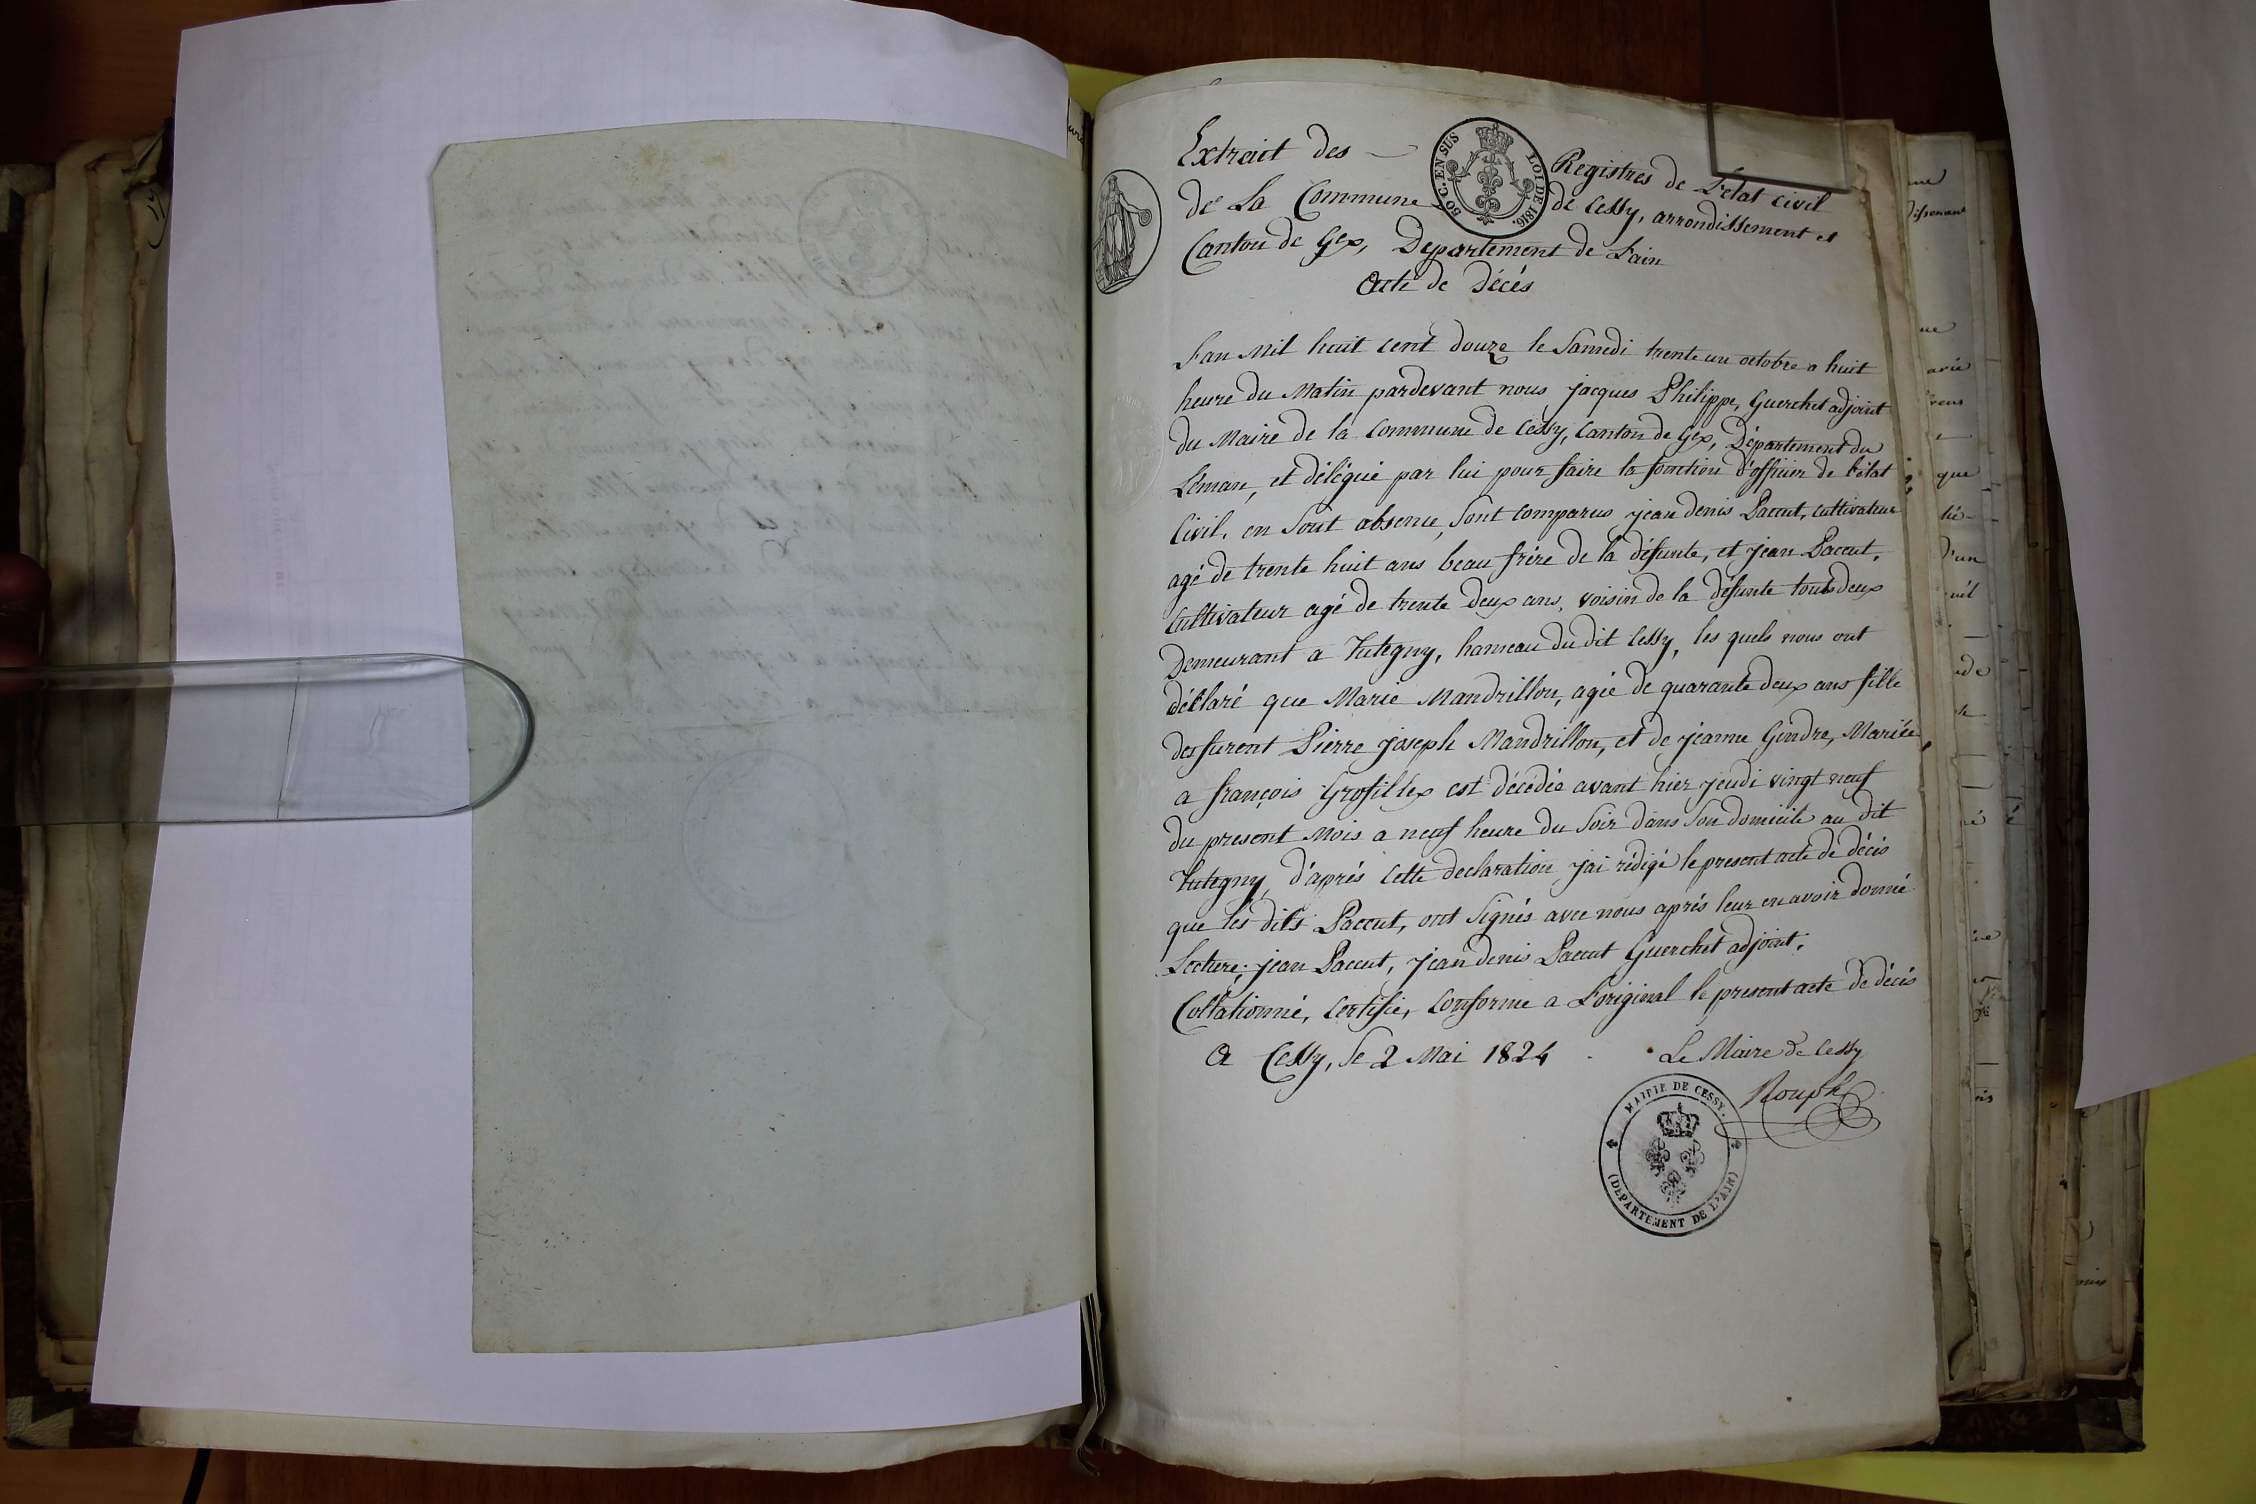 Extrait des — Registres de L'etat civil
de La Commune de Cessy, arrondissement et
Canton de Gex, Departement de L'ain
Acte de Décés
80 C. EN SUS LOI DE 1816.
L'an Mil huit cent douze le Samedi trente un octobre a huit
heure du Matin pardevant nous jacques Philippe, Guerchet adjoint
du Maire de la Commune de Cessy, Canton de Gex, Département du
Léman, et délégué par lui pour faire la fonction d'officier de l'état
Civil, en sont absence, sont comparus jean denis Paccut, cultivateur
agé de trente huit ans beau frére de la défunte, et jean Paccut,
Cultivateur agé de trente deux ans, voisin de la défunte touts deux
Demeurant a Tutegny, hameau du dit Cessy, les quels nous ont
déclaré que Marie Mandrillon, agée de quarante deux ans fille
des furent Pierre joseph Mandrillon, et de jeanne Gindre, Mariée,
a françois Grosfillex est décédée avant hier jeudi vingt neuf
du present Mois a neuf heure du Soir dans son domicile au dit
Tutegny, d'aprés cette declaration j'ai rédigé le present acte de décés
que les dits Paccut, ont signés avec nous aprés leur en avoir donné
Lecture; jean Paccut, jean denis Paccut Guerchet adjoint.
Collationné, Certifie, Conforme a L'original le present acte de décés
A Cessy, le 2 Mai 1824 . Le Maire de Cessy
Rouph
MAIRIE DE CESSY.
(DEPARTEMENT DE L'AIN)